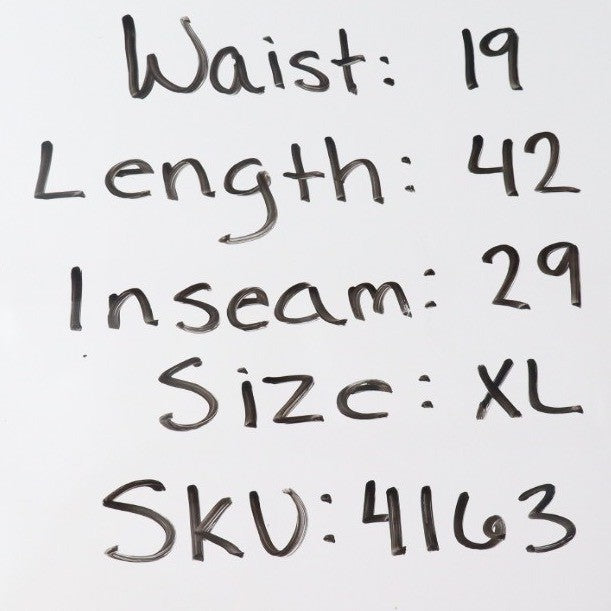 Waist: 19
Length: 42
Inseam: 29
Size: XL
SKU: 4163